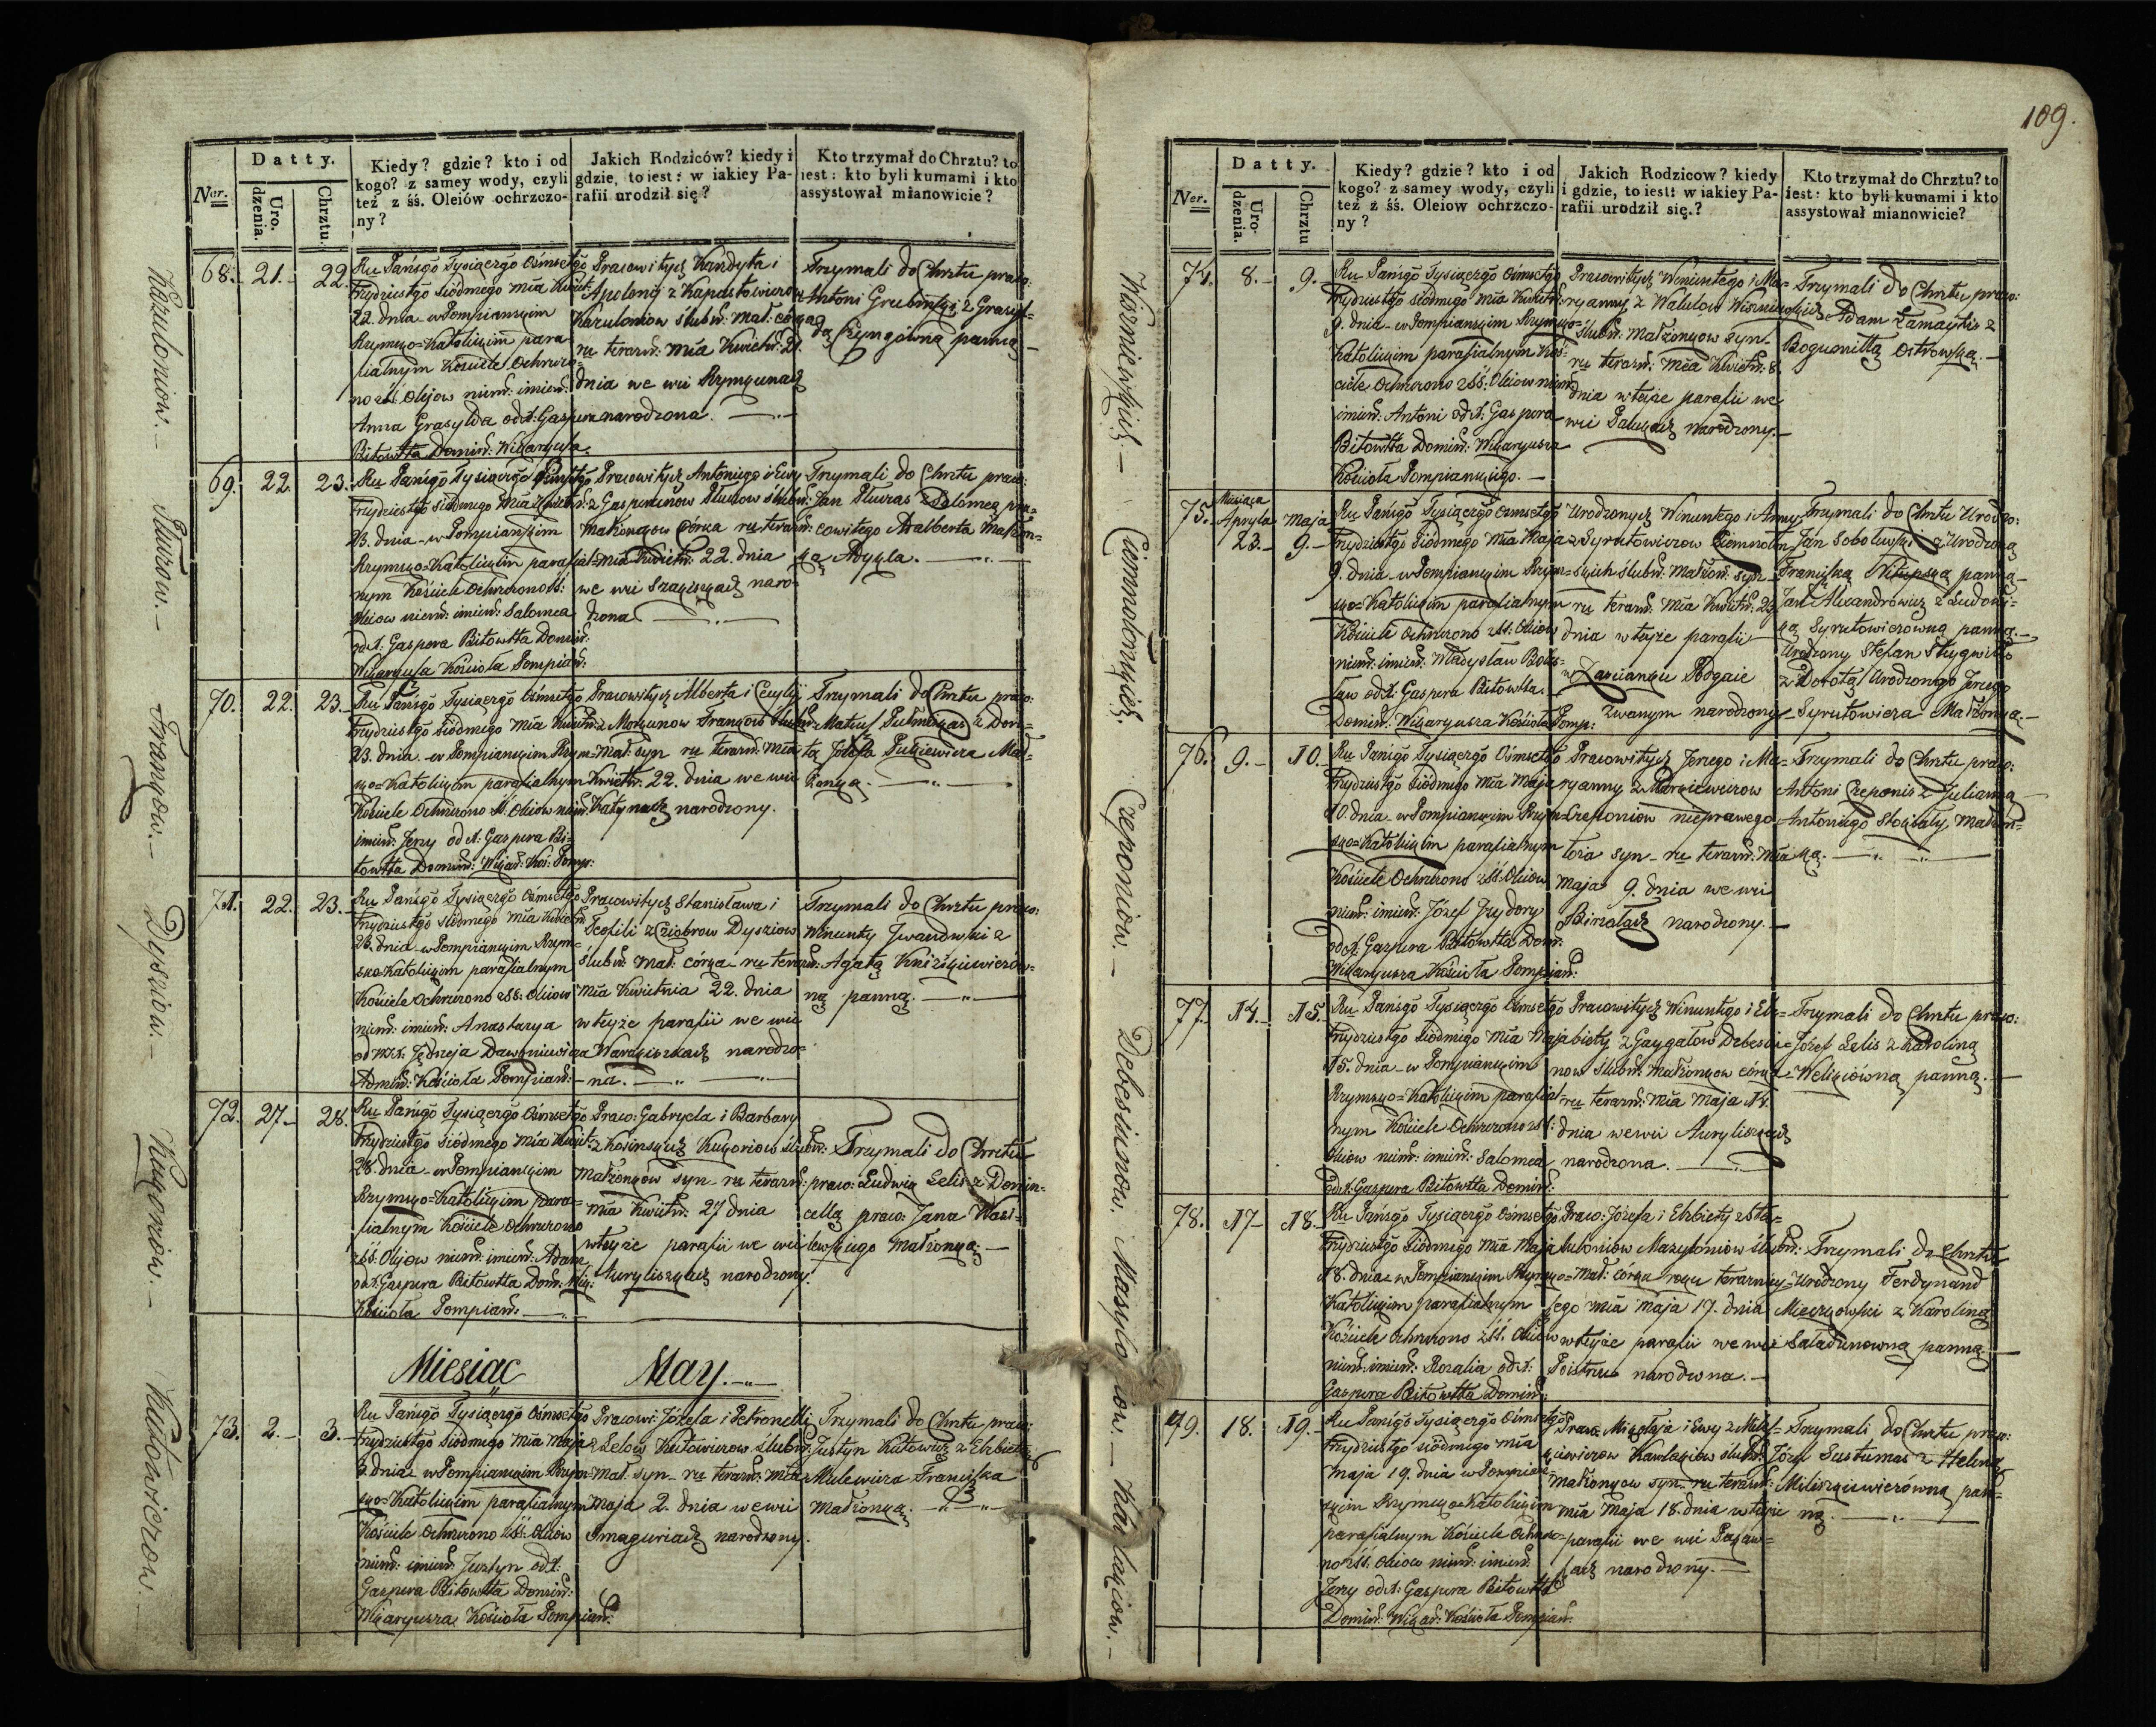 109.
Ner.
Datty.
Uro.
dzenia.
Chrztu.
Kiedy? gdzie? kto i od
kogo? z samey wody, czyli
też z śś. Oleiów ochrzczo-
ny?
Jakich Rodziców? kiedy i
gdzie, to iest: w iakiey Pa-
rafii urodził się?
Kto trzymał do Chrztu? to
iest: kto byli kumami i kto
assystował mianowicie?
Kazuloniow.
68. 21. 22.
Ru Pańsgo Tysiączgo Ośmsetgo
trzydziestgo siódmego mca Kwiet:
22. dnia w Pompiańskim
Rzymsko=Katolickim para
fialnym Kościele Ochrzczo
no z śś: Olejow niem: imien:
Anna Grasylda od X: Gaspera
Bitowtta Domin: Wikaryusza.
Pracowitych Kandyta i
Apolonij z Kapustowiczow
Kazuloniow ślubn: Mał: córka
ru terazn: mca Kwietn: 21.
dnia we wsi Rymkunach
narodzona.
Trzymali do Chrztu praco:
Antoni Grubinski z Grasyl=
dą panną
69. 22. 23.
Ru Pańsgo Tysiączgo Ośmsetgo
trzydziestgo siódmego mca Kwietn:
23. dnia w Pompiańskim
Rzymsko=Katolickim parafial=
nym Kościele Ochrzczono z śś:
Oleiow niem: imien: Salomea
od X: Gaspera Bitowtta Domin:
Wikaryusza Kościoła Pompian:
Pracowitych Antoniego i Ewy
małżonkow córka ru terazn:
mca Kwietn: 22. dnia
we wsi naro=
dzona.
Trzymali do Chrztu praco:
Jan z Salomeą pra=
cowitego Adalberta małżon=
ką
Franckow.
70. 22. 23.
Ru Pańsgo Tysiączgo Ośmsetgo
trzydziestgo siódmego mca Kwietn:
23. dnia w Pompiańskim Rzym=
sko=Katolickim parafialnym
Kościele Ochrzczono z śś: Oleiow niem:
imien: Jerzy od X: Gaspera Bi=
towtta Domin: Wikar: Koś: Pomp:
Pracowitych Alberta i Cecylij
mał: syn ru terazn: mca
Kwietn: 22. dnia we wsi
narodzony.
Trzymali do Chrztu praco:
Mateusz z Doro=
tą Józefa Mał=
żonką.
Dysziow.
71. 22. 23.
Ru Pańsgo Tysiączgo Ośmsetgo
trzydziestgo siódmego mca Kwietn
23. dnia w Pompiańskim Rzym=
sko=Katolickim parafialnym
Kościele Ochrzczono z śś: Oleiow
niem: imien: Anastazya
od W:X: Jędrzeja Dawoniewicza
Admin: Kościoła Pompian:
Pracowitych Stanisława i
Teofili z Cziobrow Dysziow
ślubn: mał: córka ru terazn:
mca Kwietnia 22. dnia
w teyże parafii we wsi
narodzo=
na.
Trzymali do Chrztu praco:
Wincenty Iwanowski z
Agatą
ną panną.
Kugoniow.
72. 27. 28.
Ru Pańsgo Tysiączgo Ośmsetgo
trzydziestgo siódmego mca Kwiet:
28. dnia w Pompiańskim
Rzymsko=Katolickim para=
fialnym Kościele Ochrzczono
z śś. Olejow niem: imien: Adam
od X. Gaspera Bitowtta Dom: Wik:
Kościoła Pompian:
Praco: Gabryela i Barbary
małżonkow syn ru terazn:
mca Kwietn: 27 dnia
w teyże parafii we wsi
Auryliszkach narodzony.
Trzymali do Chrztu
praco: Ludwik Lelis z Domi=
cellą praco: Jana Wasi=
lewskiego Małżonką.
Miesiąc May.
Kutowiczow.
73. 2. 3.
Ru Pańsgo Tysiączgo Ośmsetgo
trzydziestgo siódmego mca Maja
3. dnia w Pompiańskim Rzym=
sko=Katolickim parafialnym
Kościele Ochrzczono z śś: Oleiow
niem: imien: Justyn od X:
Gaspera Bitowtta Domin:
Wikaryusza Kościoła Pompian:
Pracowi: Józefa i Petronelli
z Lelow Kutowiczow ślubn:
Mał: syn ru terazn: mca
Maja 2. dnia we wsi
Smaguriach narodzony.
Trzymali do Chrztu praco:
Justyn Kutowicz z Elżbietą
Mulewicza Franciszka
małżonką.
Ner.
Datty.
Uro-
dzenia.
Chrztu
Kiedy? gdzie? kto i od
kogo? z samey wody, czyli
też z śś. Oleiow ochrzczo-
ny?
Jakich Rodzicow? kiedy
i gdzie, to iest: w iakiey Pa-
rafii urodził się.?
Kto trzymał do Chrztu? to
iest: kto byli kumami i kto
assystował mianowicie?
Wiszniewskich.
74. 8. 9.
Ru Pańsgo Tysiączgo Ośmsetgo
trzydziestgo siódmego mca Kwietn:
9. dnia w Pompiańskim Rzymsko=
Katolickim parafialnym Koś=
ciele Ochrzczono z śś: Oleiow niem:
imien: Antoni od X: Gaspera
Bitowtta Domin: Wikaryusza
Kościoła Pompianskiego.
Pracowitych Wincentego i Ma=
ryanny z Walulow Wiszniewskich
ślubn: Małżonkow syn
ru terazn: mca Kwietn: 8
dnia w teyże parafii we
wsi narodzony.
Trzymali do Chrztu praco:
Adam Zamaytis z
Bogumiłą Ostrowską.
75. Miesiąca
Apryla
23.
Maja
9.
Ru Pańsgo Tysiączgo Ośmsetgo
trzydziestgo siódmego mca Maja
9. dnia w Pompiańskim Rzym=
sko=Katolickim parafialnym
Kościele Ochrzczono z śś: Oleiow
niem: imien: Władysław Boles=
ław od X: Gaspera Bitowtta
Domin: Wikaryusza Kościoła Pomp:
Urodzonych Wincentego i Anny
z Syrutowiczow
skich ślubn: Małżon: syn
ru terazn: mca Kwietn: 23
dnia w teyże parafii
w Zaścianku Podgaie
zwanym narodzony
Trzymali do Chrztu Urodzo:
Jan Sobolewski z Urodzoną
Franciszką panną
Jan Alexandrowicz z Ludowi=
ką Syrutowiczowną panną.
Urodzony Stefan
z Dorotą Urodzonego Jerzego
Syrutowicza Małżonką.
Czeponiow.
76. 9. 10.
Ru Pańsgo Tysiączgo Ośmsetgo
trzydziestgo siódmego mca Maja
10. dnia w Pompiańskim Rzym=
sko=Katolickim parafialnym
Kościele Ochrzczono z śś: Oleiow
niem: imien: Józef Izydory
od X: Gaspera Bitowtta Dom:
Wikaryusza Kościoła Pompian:
Pracowitych Jerzego i Ma=
ryanny z Markiewiczow
Czeponiow nieprawego
łoża syn ru terazn: mca
Maja 9. dnia we wsi
narodzony.
Trzymali do Chrztu praco:
Antoni Czeponis z Julianną
Antoniego małżon=
ką.
Debesiunow.
77. 14. 15.
Ru Pańsgo Tysiączgo Ośmsetgo
trzydziestgo siódmego mca Maja
15. dnia w Pompiańskim
Rzymsko=Katolickim parafial=
nym Kościele Ochrzczono z śś:
Oleiow niem: imien: Salomea
od X: Gaspera Bitowtta Domin:
Pracowitych Wincentgo i Elż=
biety z Gaygałow Debesiu=
now ślubn: Małżonkow córka
ru terazn: mca Maja 14.
dnia we wsi Auryliszkach
narodzona.
Trzymali do Chrztu praco:
Józef Lelis z Karoliną
panną.
Masyloniow.
78. 17. 18.
Ru Pańsgo Tysiączgo Ośmsetgo
trzydziestgo siódmego mca Maja
18. dnia w Pompiańskim Rzymsko=
Katolickim parafialnym
Kościele Ochrzczono z śś. Oleiow
niem: imien: Rozalia od X:
Gaspera Bitowtta Domin:
Praco: Józefa i Elżbiety z Sta=
luloniow Mazyloniow ślubn:
Mał: córka roku teraźniey=
szego mca Maja 17. dnia
w teyże parafii we wsi
Poistrus narodzona.
Trzymali do Chrztu
Urodzony Ferdynand
Mieczkowski z Karoliną
panną.
Karlakiow.
79. 18. 19.
Ru Pańsgo Tysiączgo Ośmsetgo
trzydziestgo siódmego mca
Maja 19. dnia w Pompiań=
skim Rzymsko=Katolickim
parafialnym Kościele Ochrzczo=
no z śś. Oleiow niem: imien:
Jerzy od X: Gaspera Bitowtta
Domin: Wikar: Kościoła Pompian:
Praco: Mikołaja i Ewy
małżonkow syn ru terazn:
mca Maja 18. dnia w teyże
parafii we wsi
narodzony.
Trzymali do Chrztu praco:
Józef z Heleną
pan=
ną.